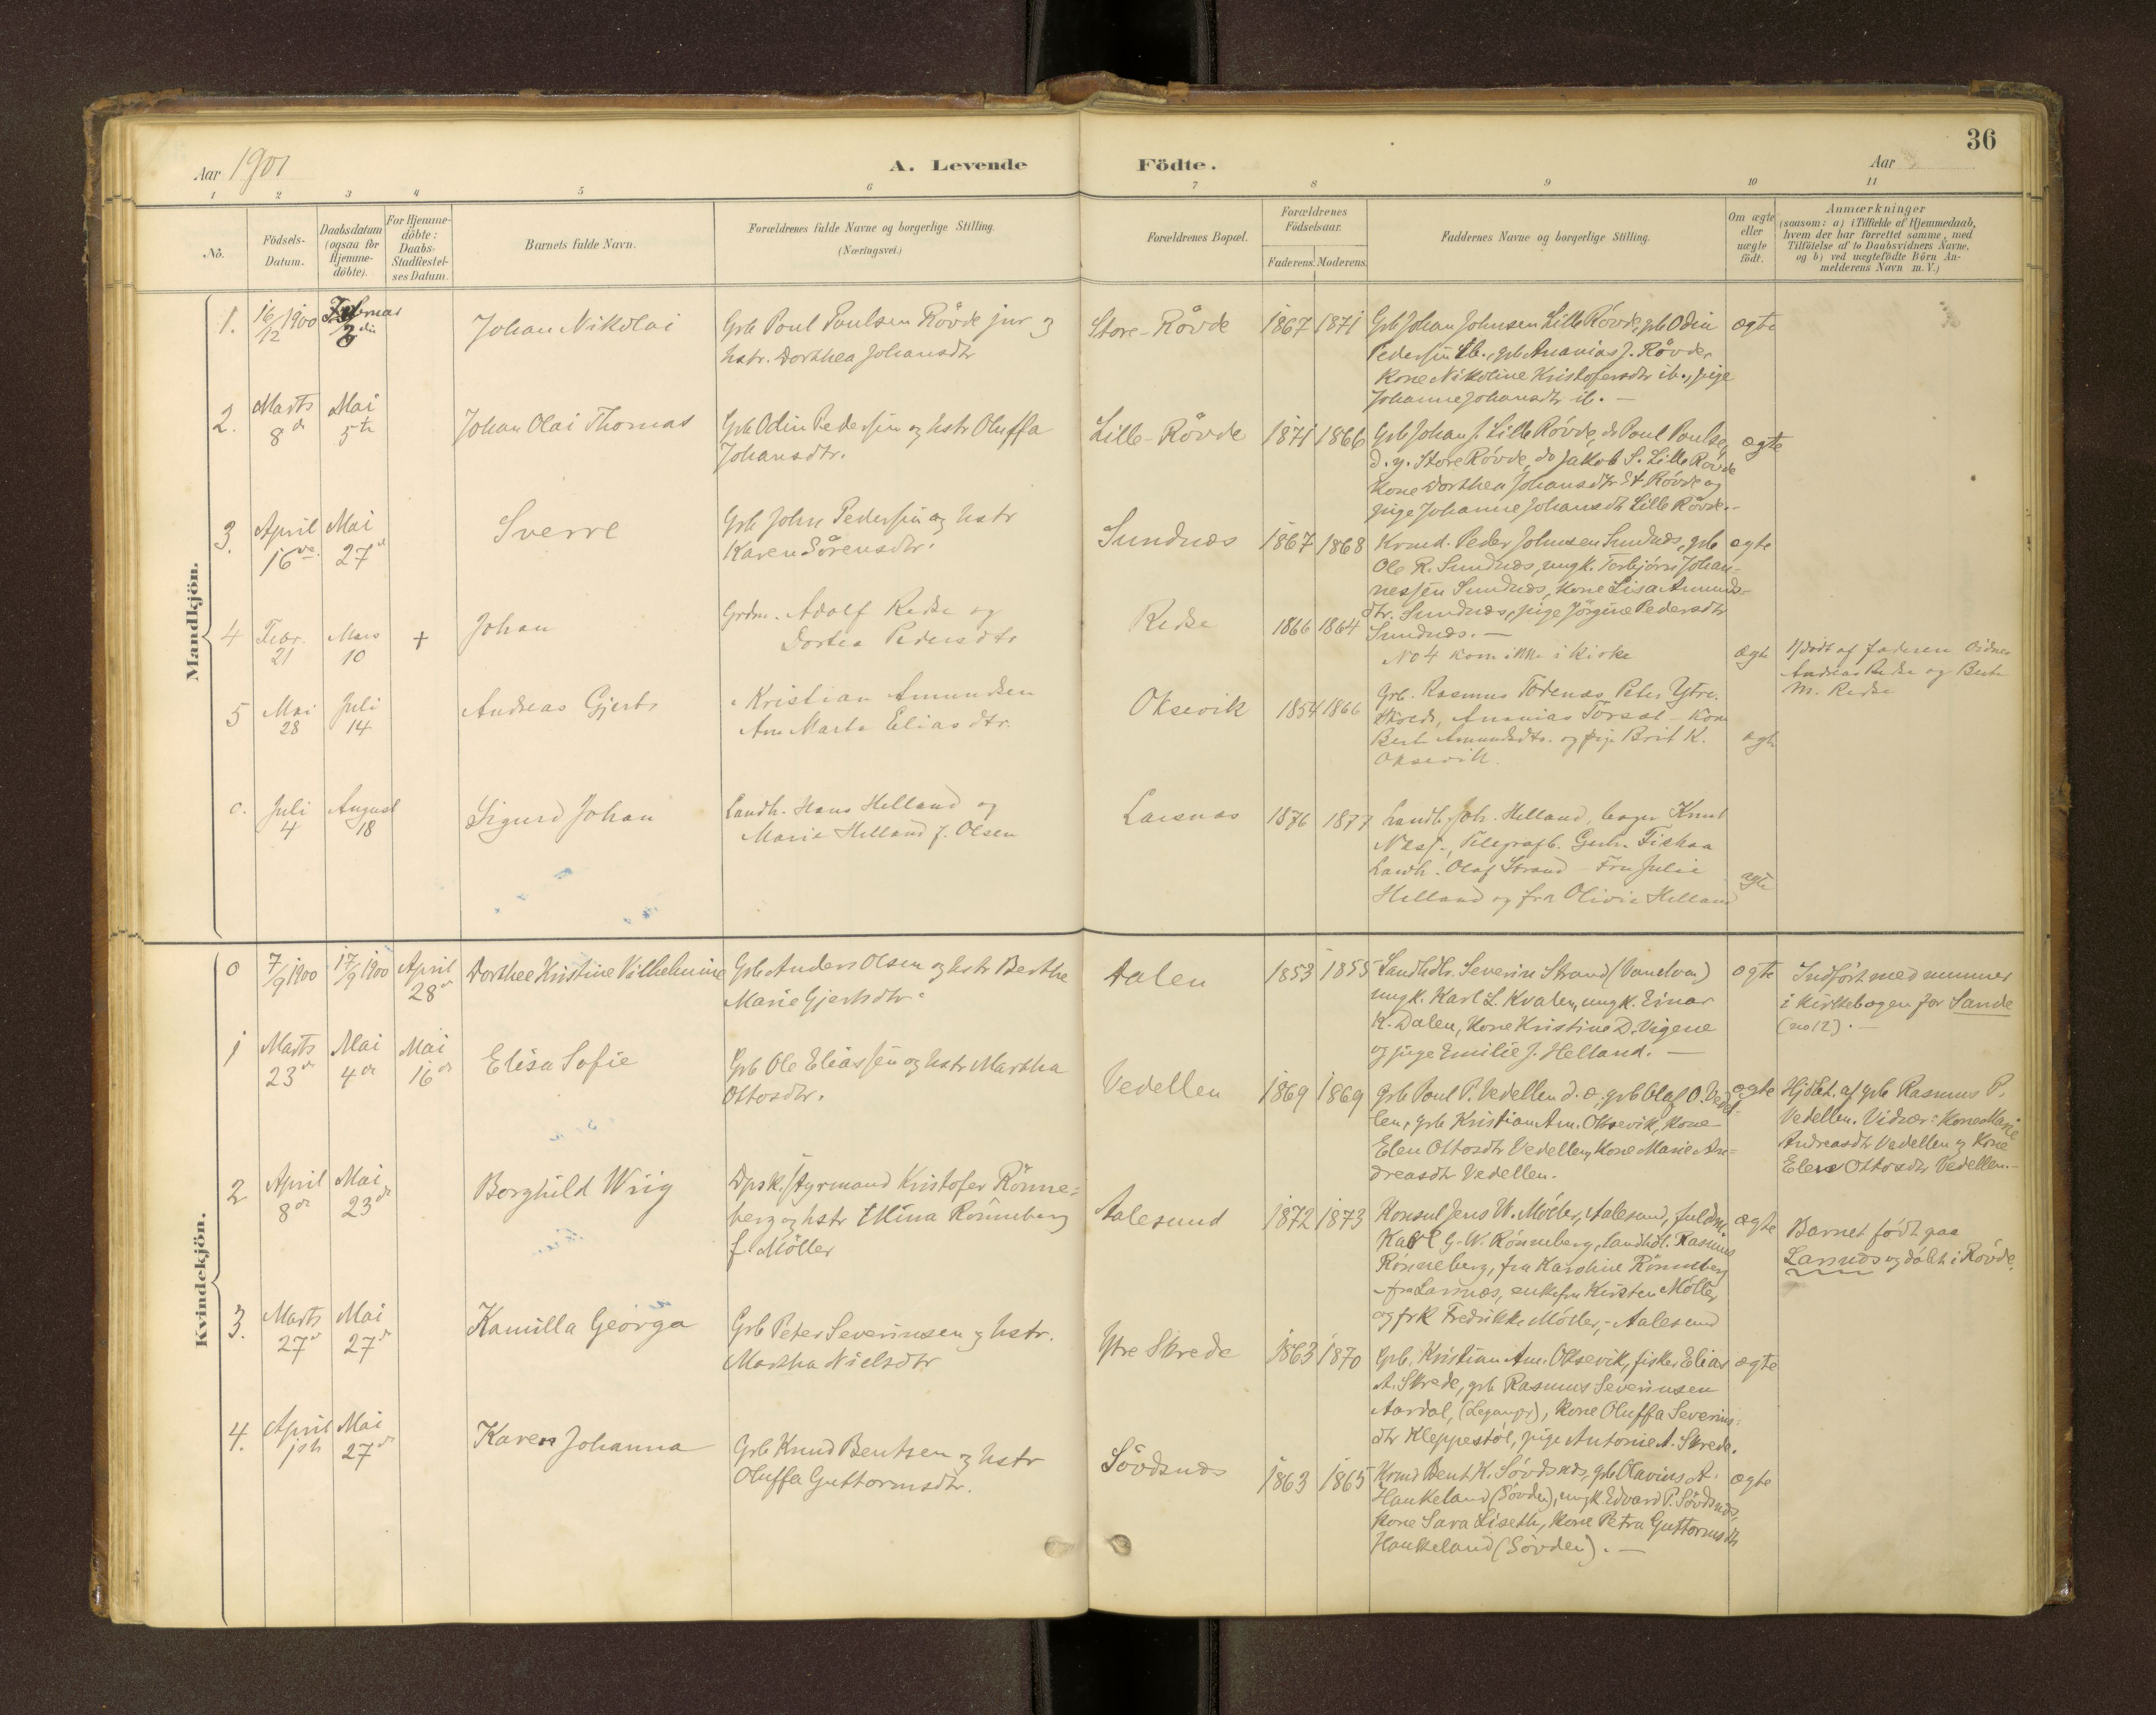 36
Aar 1901
A. Levende
Födte.
Aar
1 2 3 4 5 6 7 8 9 10 11
No.
Födsels-Datum.
Daabsdatum (ogsaa for Hjemme-döbte).
For Hjemme-döbte: Daabs-Stadfæstel-ses Datum.
Barnets fulde Navn.
Forældrenes fulde Navne og borgerlige Stilling.
(Næringsvei.)
Forældrenes Bopæl.
Forældrenes Födselsaar.
Faderens. Moderens.
Faddernes Navne og borgerlige Stilling.
Om ægte eller uægte födt.
Anmærkninger
(saasom: a) i Tilfælde af Hjemmedaab,
hvem der har forrettet samme, med
Tilföielse af to Daabsvidners Navne,
og b) ved uægtefödte Börn An-
melderens Navn m. V.)
Mandkjön.
1. 16/12 1900 Februar 3die
Johan Nikolai
Grb Poul Poulsen Rövde jur og
hstr. Dorthea Johansdtr
Store-Rövde
1867 1871
Grb Johan Johnsen Lille Rövde, grb Odin
Pedersen ib., grb Ananias J. Rövde,
Kone Nikoline Kristofersdtr ib., pige
Johanne Johansdtr ib. —
ægte
2. Marts 8de Mai 5te
Johan Olai Thomas
Grb Odin Pedersen og hstr Oluffa
Johansdtr.
Lille-Rövde
1871 1866
Grb Johan J. Lille Rövde, do Poul Poulse,
d. y. Store Rövde, do Jakob S. Lille Rövde
Kone Dorthea Johansdtr St Rövde og
pige Johanne Johansdt Lille Rövde.-
ægte
3. April 16de Mai 27d
Sverre
Grb John Pedersen og hstr
Karen Sörensdtr.
Sundnæs
1867 1868
Krmd. Peder Johnsen Sundnæs, grb
Ole R. Sundnæs, ungk. Torbjörn Johan-
nessen Sundnæs, Kone Lisa Amunds-
dtr. Sundnæs, pige Jörgine Pedersdtr
Sundnæs. —
ægte
4 Febr. 21 Mars 10 +
Johan
Grdm. Adolf Redse og
Dortea Pedersdtr
Redse
1866 1864
No 4 kom ikke i Kirke
ægte
Hjdöbt af faderen Vidner
Andreas Redse og Berte
M. Redse
5 Mai 28 Juli 14
Andreas Gjert
Kristian Amundsen
Ane Marta Eliasdtr.
Oksevik
1854 1866
Grb. Rasmus Peter Ytre
Skrede, Ananias - Kone
Berte Amundsdtr. og pige Brit K.
Oksevik.
ægte
Juli 4 August 18
Sigurd Johan
Landh. Hans Helland og
Marie Helland f. Olsen
Larsnæs
1876 1877
Landh. Joh. Helland, bager Knut
Næss, Telegrafb. Fiskaa
Landh. Olaf Strand - Fru Julie
Helland og fru Olivia Helland
ægte
Kvindekjön.
0 7/9 1900 17/9 1900 April 28d
Dorthee Kristine Vilhelmine
Grb Anders Olsen og hstr Berthe
Marie Gjertsdtr.
Aalen
1853 1855
Landhdlr. Severin Strand (Vanelven)
ungk. Karl L. Kvalen, ungk. Einar
K. Dalen, Kone Kristine D. Vigene
og pige Emilie J. Helland. —
ægte
Indfört med nummer
i kirkebogen for Sande
(no 12). —
1 Marts 23d Mai 4de Mai 16de
Elisa Sofie
Grb Ole Eliassen og hstr Martha
Ottosdtr.
Vedellen
1869 1869
Grb Poul P. Vedellen d. æ., grb Olaf O. Vedel-
len, grb Kristian Am. Oksevik, Kone
Elen Ottosdt Vedellen, Kone Marie An-
dreasdtr Vedellen.
ægte
Hjdöbt. af grb Rasmus P.
Vedellen. Vidner: Kone Marie
Andreasdtr Vedellen og Kone
Elen Ottosdtr Vedellen.—
2 April 8de Mai 23d
Borghild Wiig
Dpsk. styrmand Kristofer Rönne-
berg og hstr Mina Rönneberg
f. Möller
Aalesund
1872 1873
Konsul Jens W. Möller, Aalesund, fuldm.
Karl G. W. Rönneberg, landhdl. Rasmus
Rönneberg, fru Karoline Rönneberg
fra Larsnæs, enkefru Kirsten Möller
og frk Fredrikke Möller, - Aalesund
ægte
Barnet födt paa
Larsnæs og döbt i Rövde.
3. Marts 27d Mai 27d
Kamilla Georga
Grb Peter Severinsen og hstr.
Martha Nielsdtr
Ytre Skrede
1863 1870
Grb. Kristian Am. Oksevik, fisker Elias
A. Skrede, grb Rasmus Severinsen
Aardal, (Leganger), Kone Oluffa Severins-
dtr Kleppestöl, pige Antonie A. Skrede.
ægte
4. April 1ste Mai 27d
Karen Johanna
Grb Knud Bentsen og hstr
Oluffa Guttormsdtr.
Sövdsnæs
1863 1865
Krmd Bent K. Sövdsnæs, grb Olavius A.
Haukeland (Sövden), ungk. Edvard P. Sövdsnæs,
Kone Sara Liseth, Kone Petra Guttormsdtr
Haukeland (Sövden). —
ægte